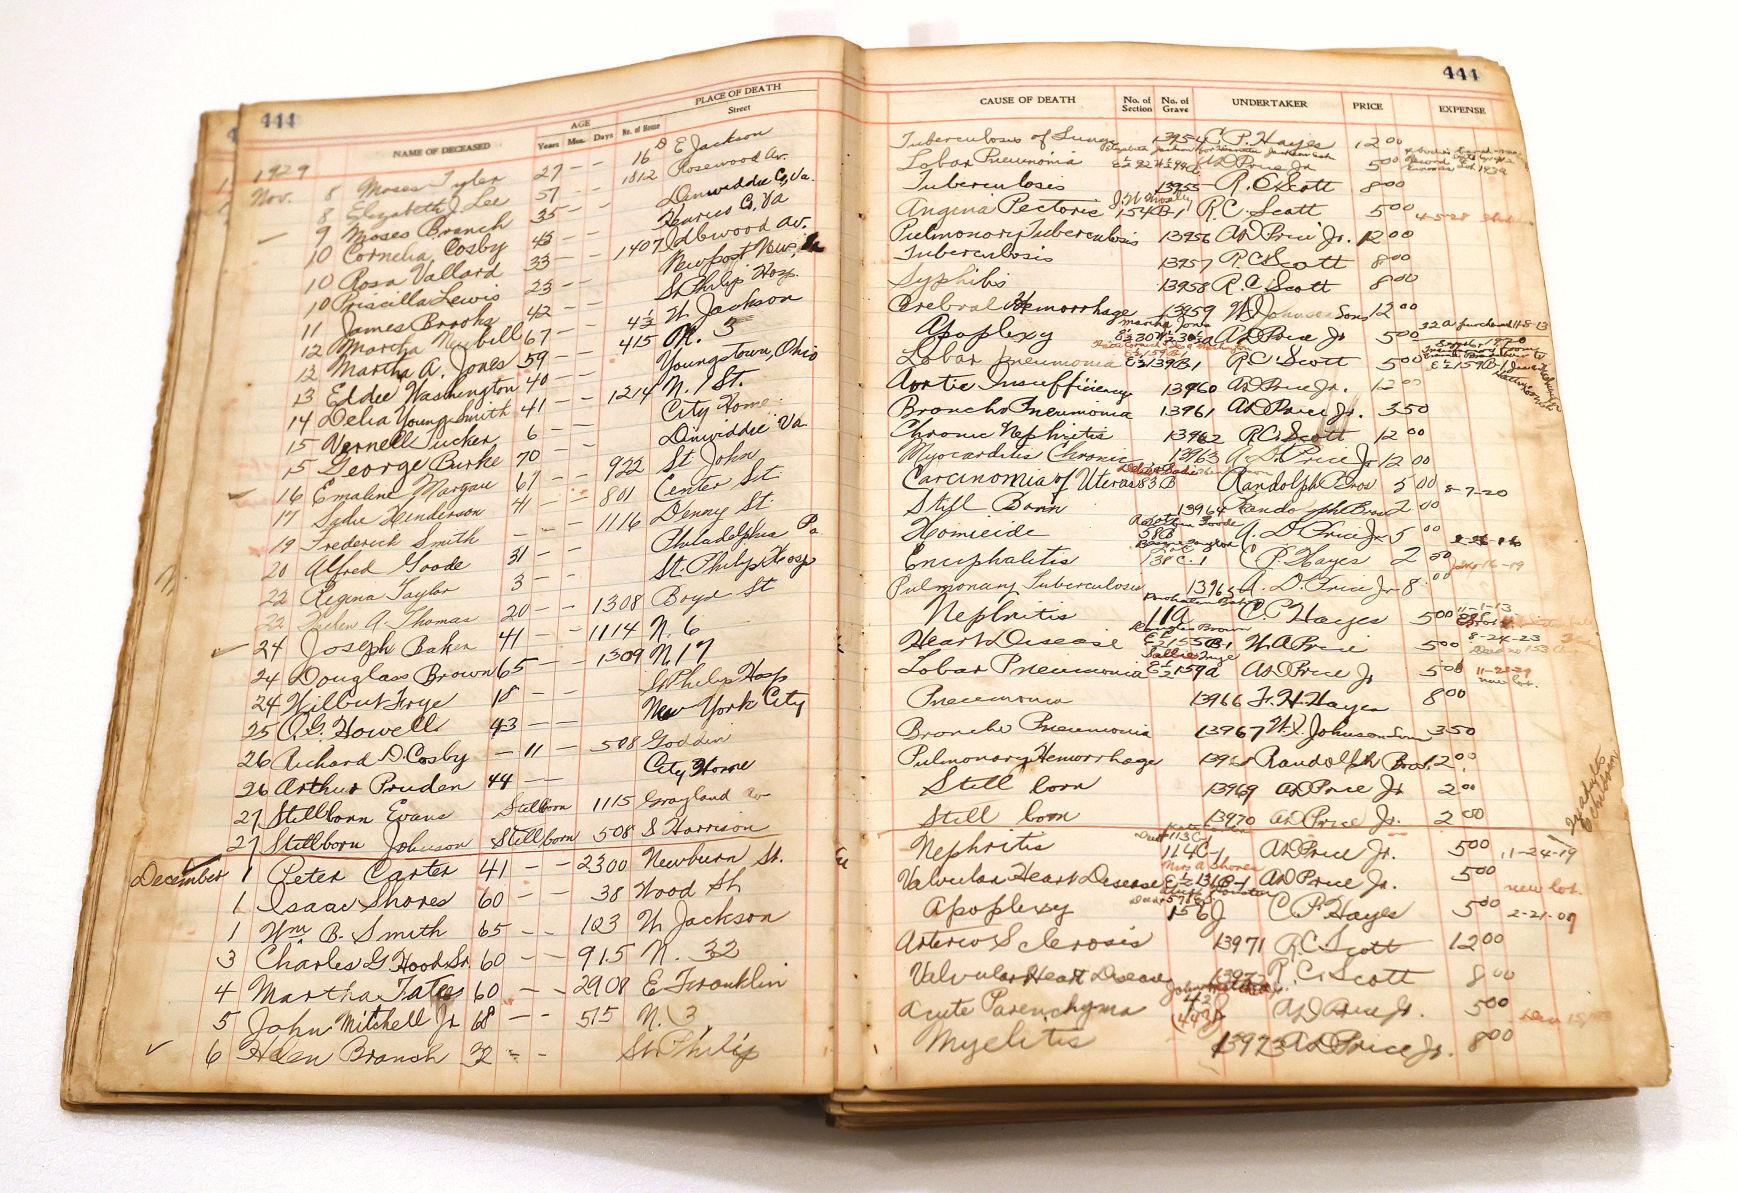 444
AGE
PLACE OF DEATH
NAME OF DECEASED Years Mos. Days No. of House Street
1929
Nov. 8 Moses Tyler 27 - - 16 E Jackson
8 Elizabeth J. Lee 57 - - 1812 Rosewood Av.
9 Moses Branch 35 - - Dinwiddie Co, Va.
10 Cornelia Cosby 45 - - Henrico Co, Va
10 Rosa Vallard 33 - - 1407 Idlewood Av.
10 Priscilla Lewis 23 - - Newport News, Va
11 James Brooks 42 - - St Philip Hosp.
12 Martha Newbell 67 - - 4½ W Jackson
12 Martha A. Jones 59 - - 415 N. 3
13 Eddie Washington 40 - - Youngstown, Ohio
14 Delia Young Smith 41 - - 1214 N. 1 St.
15 Vernell Tucker 6 - City Home
15 George Burke 70 - - Dinwiddie Va.
16 Emaline Morgan 67 - - 922 St John
17 Sadie Henderson 41 - - 801 Center St
19 Frederick Smith - - 1116 Denny St
20 Alfred Goode 31 - - Philadelphia Pa
22 Regina Taylor 3 - - St. Philip Hosp
22 A. Thomas 20 - - 1308 Boyd St
24 Joseph Baker 41 - - 1114 N. 6
24 Douglass Brown 65 - - 1309 N 17
24 Wilbut Frye 18 - - St Philip Hosp
25 O.G. Howell 43 - - New York City
26 Richard D. Cosby - 11 - 508 Goddin
26 Arthur Pruden 44 - - City Home
27 Stillborn Evans Stillborn 1115 Grayland Av
27 Stillborn Johnson Stillborn 508 S Harrison
December 1 Peter Carter 41 - - 2300 Newburn St.
1 Isaac Shores 60 - - 38 Wood St
1 Wm B. Smith 65 - - 123 W Jackson
3 Charles G Hood Sr 60 - - 915 N. 32
4 Martha Tates 60 - - 2908 E Franklin
5 John Mitchell Jr 68 - - 515 N. 3
6 Helen Branch 32 - - St. Philip
444
CAUSE OF DEATH No. of Section No. of Grave UNDERTAKER PRICE EXPENSE
Tuberculosis of Lungs 13954 C. P. Hayes 12 00
Lobar Pneumonia A D Price Jr. 5 00
Tuberculosis 13955 R. C. Scott 8 00
Angina Pectoris 154 B-1 R.C. Scott 5 00 4-5-28
Pulmonary Tuberculosis 13956 A D Price Jr. 12 00
Tuberculosis 13957 R.C. Scott 8 00
Syphilis 13958 R.C. Scott 8 00
Cerebral Hemorrhage 13959 W. I. Johnson Sons 12 00
Martha Jones
Apoplexy A D Price Jr 5 00 32 A purchased 11-8-13
Lobar Pneumonia E½ 139 B-1 R.C. Scott 5 00
Aortic Insufficiency 13960 A D Price Jr. 12 00
Broncho Pneumonia 13961 A D Price Jr. 3 50
Chronic Nephritis 13962 R.C. Scott 12 00
Myocarditis Chronic 13963 A. D. Price Jr 12 00
Carcinoma of Uterus 83 B Randolph Bros 5 00 8-7-20
Still Born 13964 Randolph Bros 2 00
Homicide 58 B A. D. Price Jr 5 00
Encephalitis 138 C-1 C P. Hayes 2 50
Pulmonary Tuberculosis 13965 A. D. Price Jr 8 00
Nephritis 11 A C. P. Hayes 5 00 11-1-13
Douglas Brown
Heart Disease E½ 155 B-1 W A Price 5 00 8-24-23
Lobar Pneumonia E½ 159 A A D Price Jr 5 00 11-23-29
new lot.
Pneumonia 13966 F. H. Hayes 8 00
Broncho Pneumonia 13967 W. I. Johnson Sons 3 50
Pulmonary Hemorrhage 13968 Randolph Bros. 12 00
Still born 13969 A D Price Jr 2 00
Still born 13970 A D Price Jr. 2 00
Nephritis 114 C-1 A D Price Jr. 5 00 11-24-19
Valvular Heart Disease E½ 131 B-1 A D Price Jr. 5 00 new lot.
Apoplexy 156 J C. P. Hayes 5 00 2-21-09
Arterio Sclerosis 13971 R.C. Scott 12 00
Valvular Heart Disease 13972 R. C. Scott 8 00
Acute Parenchyma 42 A D Price Jr. 5 00
Myelitis 13973 A D Price Jr. 8 00